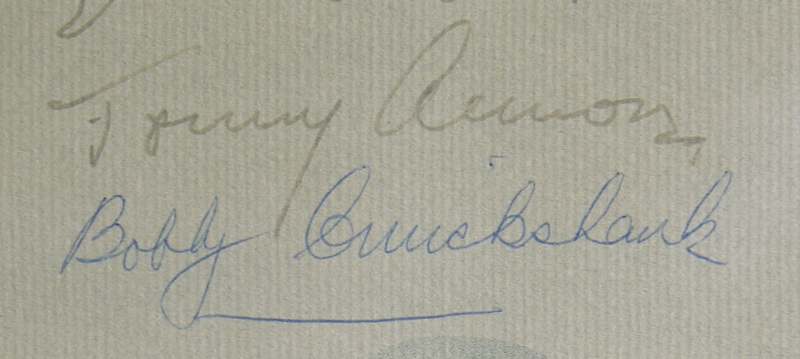 Tommy Armour
Bobby Cruickshank